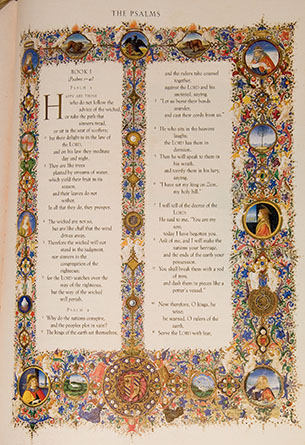 THE PSALMS
BOOK I
(Psalms 1–41)
PSALM 1
HAPPY ARE THOSE
who do not follow the
advice of the wicked,
or take the path that
sinners tread,
or sit in the seat of scoffers;
but their delight is in the law of
the LORD,
and on his law they meditate
day and night.
They are like trees
planted by streams of water,
which yield their fruit in its
season,
and their leaves do not
wither.
In all that they do, they prosper.
The wicked are not so,
but are like chaff that the wind
drives away.
Therefore the wicked will not
stand in the judgment,
nor sinners in the
congregation of the
righteous;
for the LORD watches over the
way of the righteous,
but the way of the wicked
will perish.
PSALM 2
Why do the nations conspire,
and the peoples plot in vain?
The kings of the earth set themselves,
and the rulers take counsel
together,
against the LORD and his
anointed, saying,
"Let us burst their bonds
asunder,
and cast their cords from us."
He who sits in the heavens
laughs;
the LORD has them in
derision.
Then he will speak to them in
his wrath,
and terrify them in his fury,
saying,
"I have set my king on Zion,
my holy hill."
I will tell of the decree of the
LORD:
He said to me, "You are my
son;
today I have begotten you.
Ask of me, and I will make the
nations your heritage,
and the ends of the earth your
possession.
You shall break them with a rod
of iron,
and dash them in pieces like a
potter's vessel."
Now therefore, O kings, be
wise;
be warned, O rulers of the
earth.
Serve the LORD with fear,